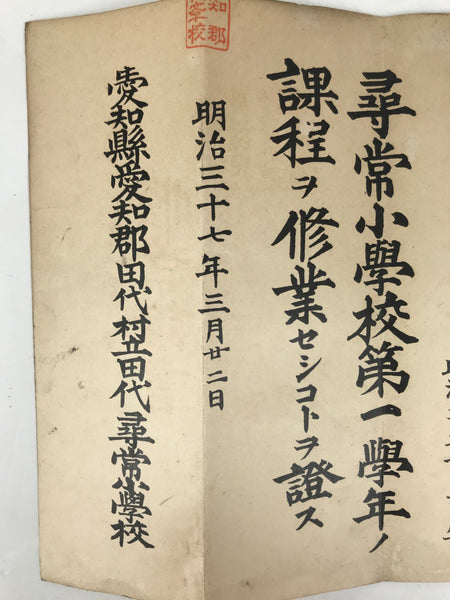 尋常小學校第一學年ノ
課程ヲ修業セシコトヲ證ス
明治三十七年三月廿二日
愛知縣愛知郡田代村立田代尋常小學校
知郡
章校